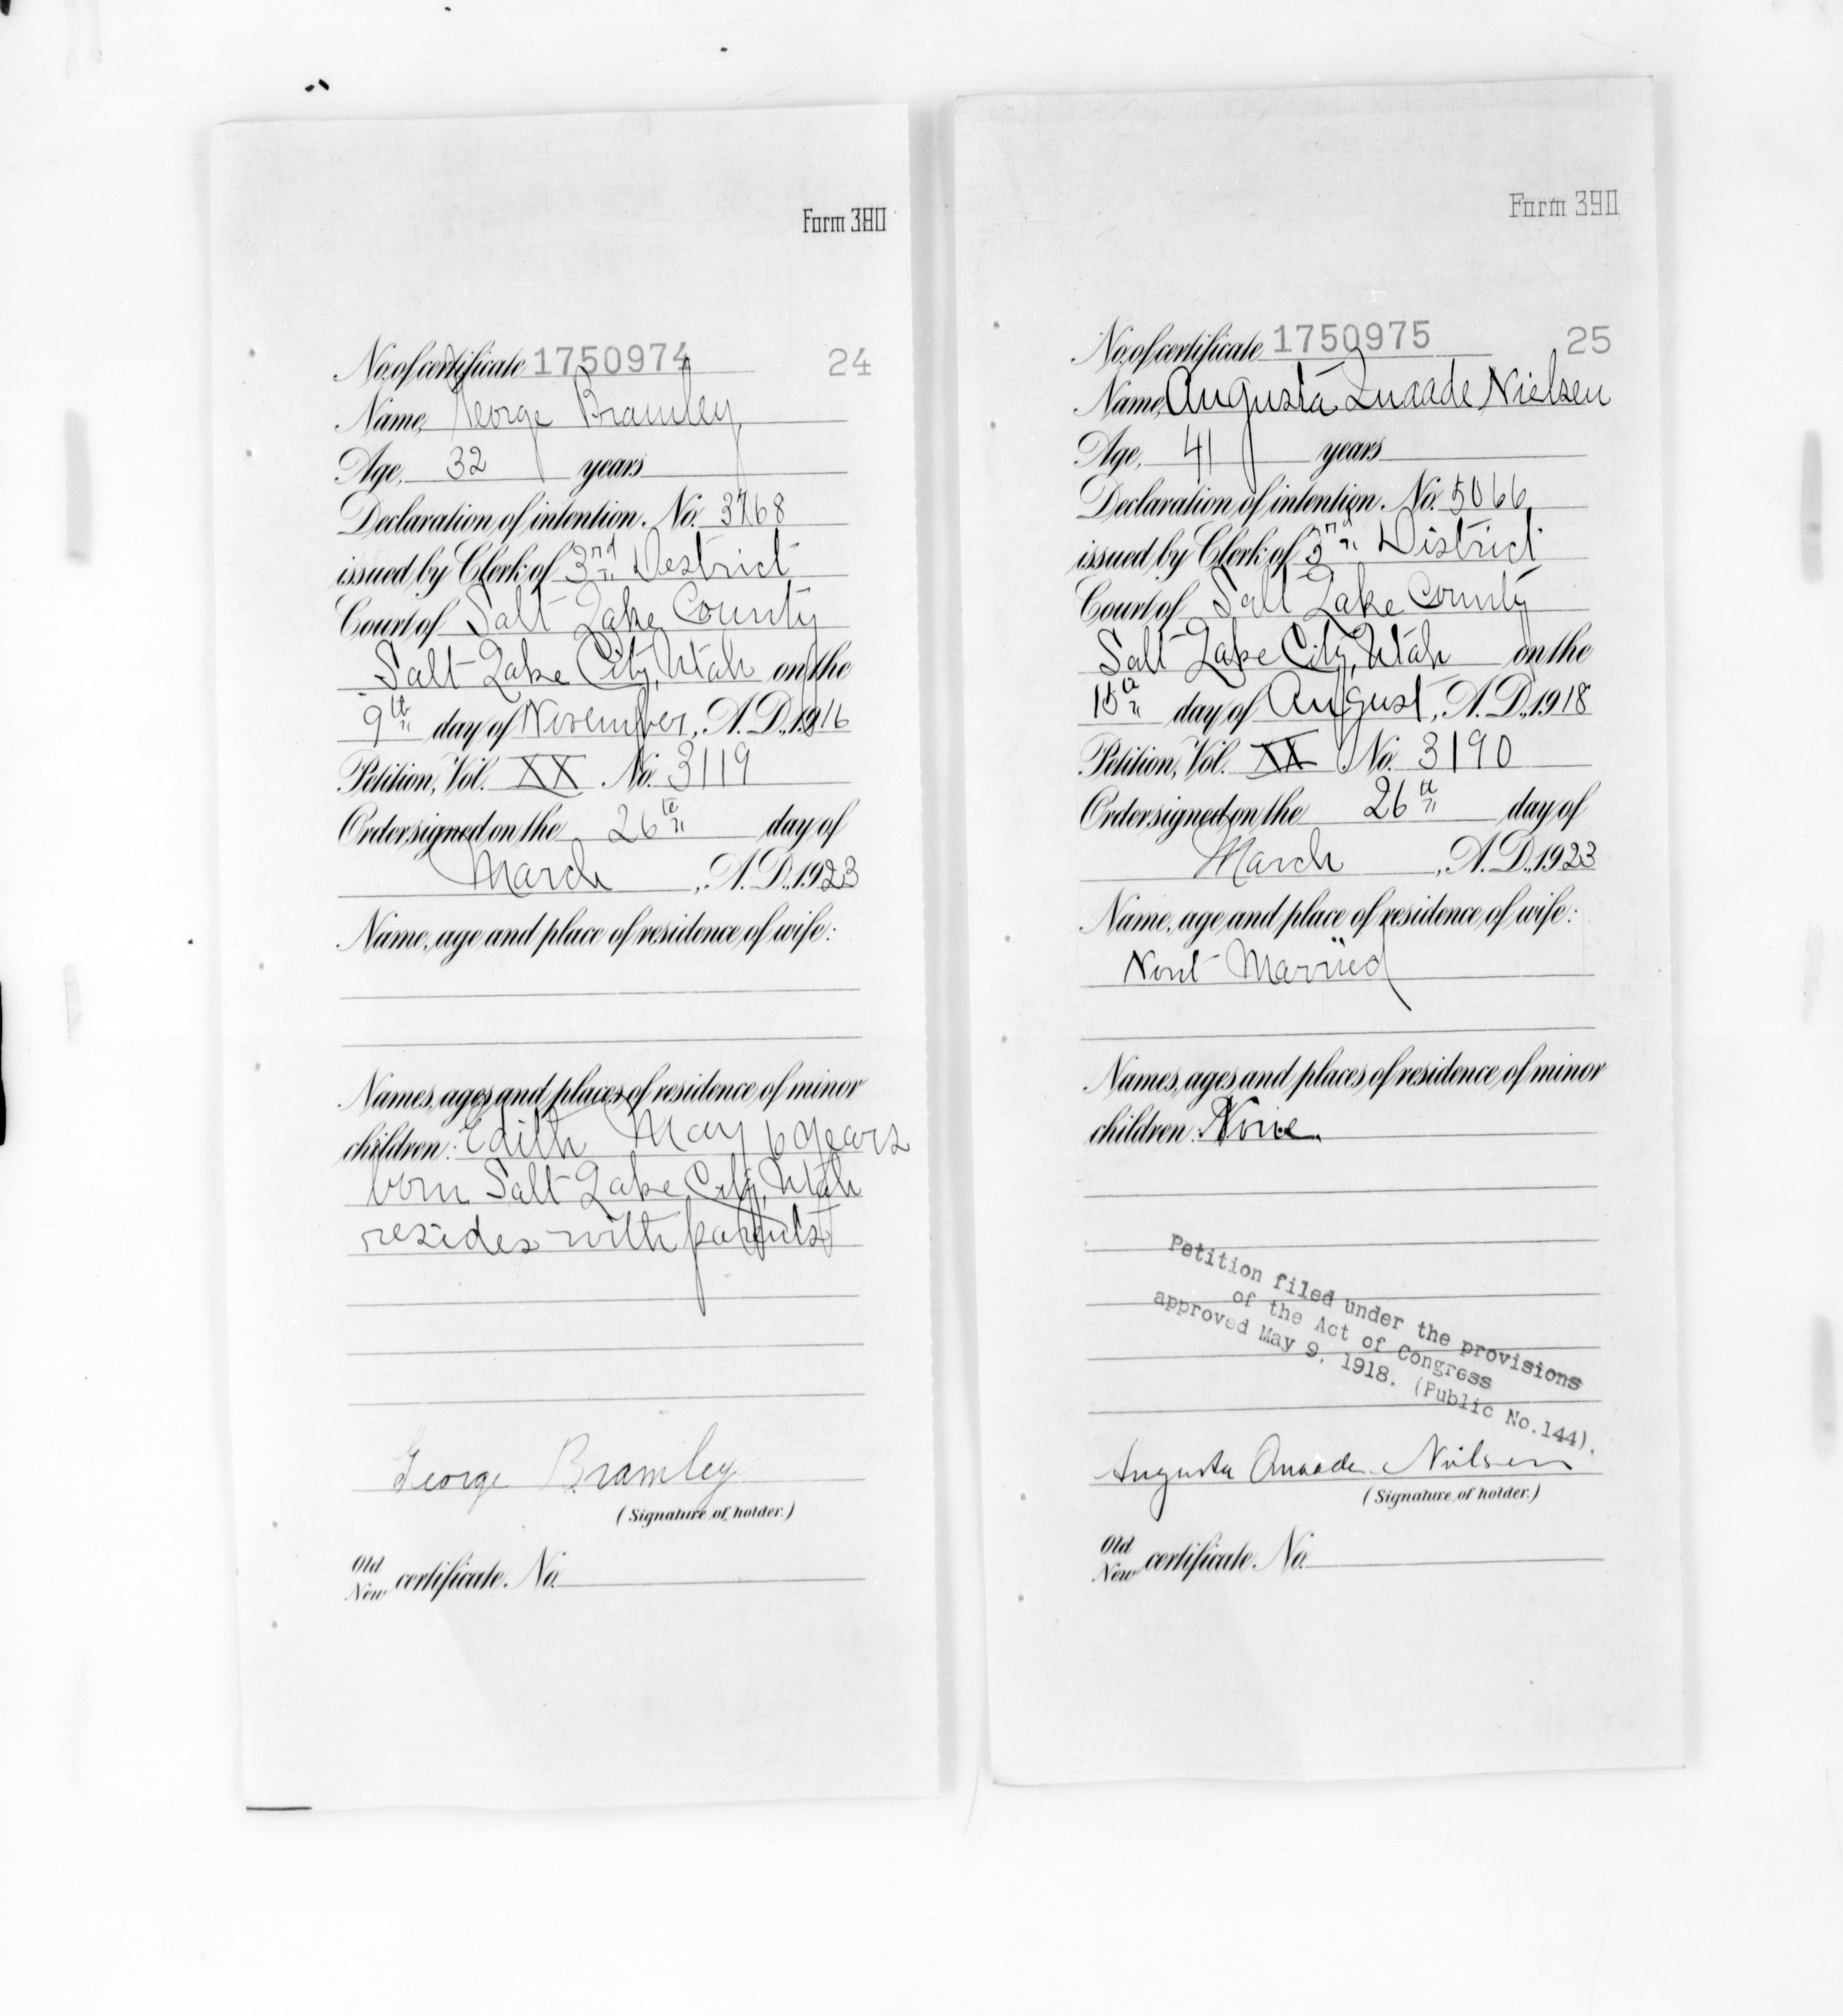 Form 390
No. of certificate 1750974 24
Name, George Bramley
Age, 32 years
Declaration of intention. No. 3768
issued by Clerk of 3rd Destrict
Court of Salt Lake County
Salt Lake City, Utah on the
9th day of November, A.D., 1916
Petition, Vol. XX No. 3119
Order signed on the 26th day of
March, A.D., 1923
Name, age and place of residence of wife:
Names, ages and places of residence of minor
children: Edith May 6 years
born Salt Lake City, Utah
resides with parents
George Bramley
(Signature of holder.)
Old
New certificate. No.
Form 390
No. of certificate 1750975 25
Name, Augusta Nielsen
Age, 41 years
Declaration of intention. No. 5066
issued by Clerk of 3rd District
Court of Salt Lake County
Salt Lake City, Utah on the
15th day of August, A.D., 1918
Petition, Vol. XX No. 3190
Order signed on the 26th day of
March, A.D., 1923
Name, age and place of residence of wife:
Married
Names, ages and places of residence of minor
children: None.
Petition filed under the provisions
of the Act of Congress
approved May 9, 1918. (Public No.144).
Augusta Nielsen
(Signature of holder.)
Old
New certificate. No.